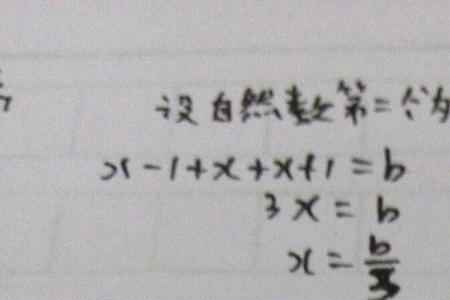 设自然数第二个为
x-1+x+x+1=b
3x=b
x=\frac{b}{3}